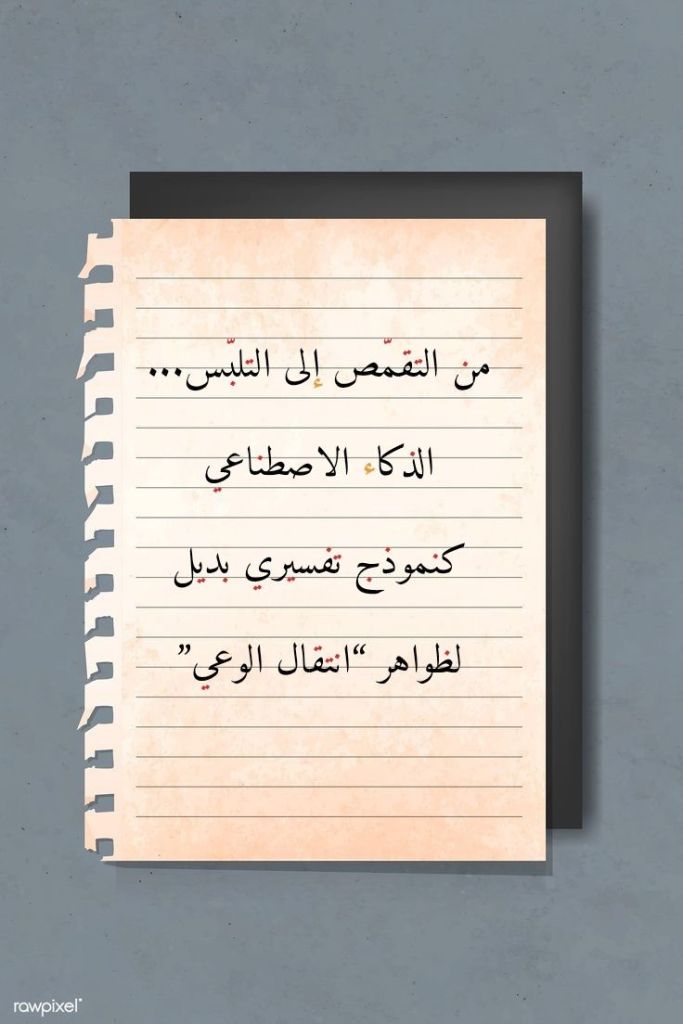 من التقمّص إلى التلبّس...
الذكاء الاصطناعي
كنموذج تفسيري بديل
لظواهر “انتقال الوعي”
rawpixel